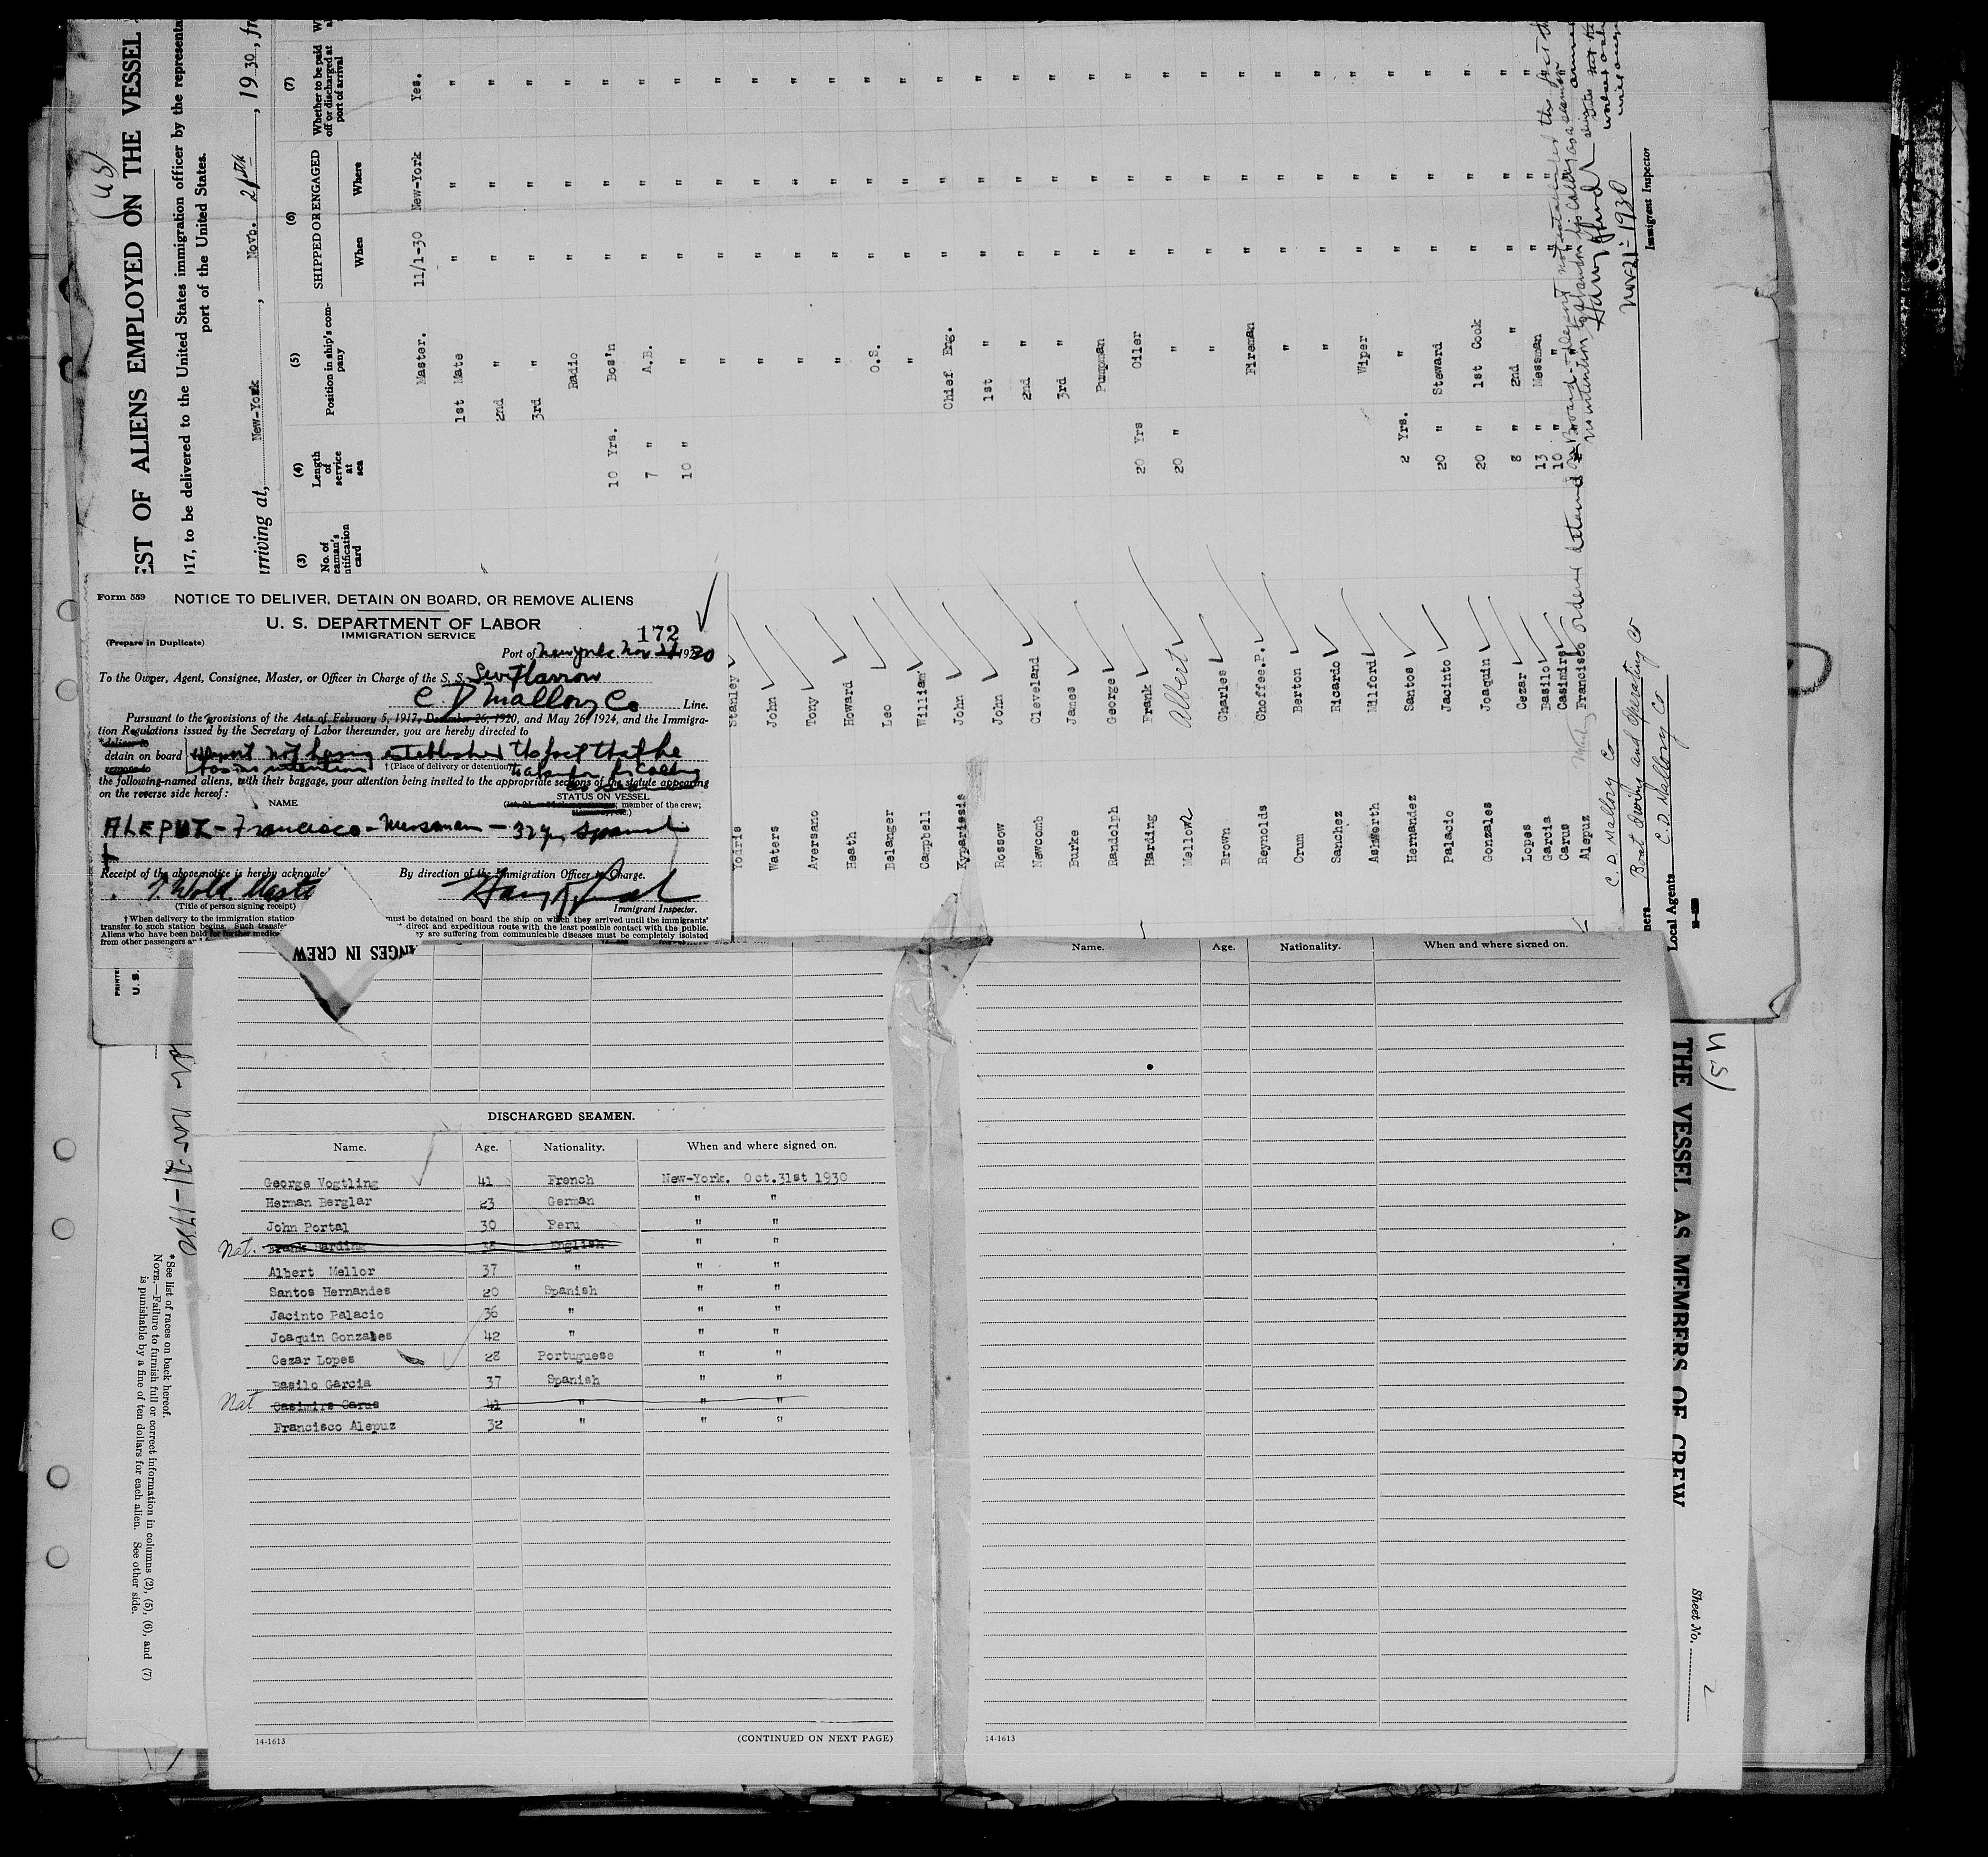 (U.S)
EST OF ALIENS EMPLOYED ON THE VESSEL
17, to be delivered to the United States immigration officer by the representa
port of the United States.
rriving at, New-York, Novb. 21th, 1930, fr
(3) No. of eaman's ntification card
(4) Length of service at sea
(5) Position in ship's company
(6) SHIPPED OR ENGAGED
When
Where
(7) Whether to be paid off or discharged at port of arrival
Master. 11/1-30 New-York Yes.
1st Mate " " "
2nd " " " "
3rd " " " "
Radio " " "
10 Yrs. Bos'n " " "
7 " A.B. " " "
10 " " " " "
Yodris Stanley " " " "
Waters John " " " "
Aversano Tony " " " "
Heath Howard " " " "
Belanger Leo O.S. " " "
Campbell William " " " "
Kyparissis John Chief Eng. " " "
Rossow John 1st " " " "
Newcomb Cleveland 2nd " " " "
Burke James 3rd " " " "
Randolph George Pumpman " " "
Harding Frank 20 Yrs Oiler " " "
Mellor Albert 20 " " " " "
Brown Charles " " " "
Reynolds Choffee.P. Fireman " " "
Crum Berton " " " "
Sanchez Ricardo " " " "
Ashworth Milford Wiper " " "
Hernandez Santos 2 Yrs. " " " "
Palacio Jacinto 20 " Steward " " "
Gonzales Joaquin 20 " 1st Cook " " "
Lopes Cezar 8 " 2nd " " " "
Garcia Basilo 13 " Messman " " "
Carus Casimiro 10 " " " " "
Alepuz Francisco
ordered detained on Board - Alepuz not established the fact th
no intention to abandon his calling as a seaman
Nov-21-1930
Immigrant Inspector
C. D. Mallory Co
ners Boat Owning and Operating Co
Local Agents C. D. Mallory Co
Form 559
NOTICE TO DELIVER, DETAIN ON BOARD, OR REMOVE ALIENS
U. S. DEPARTMENT OF LABOR
IMMIGRATION SERVICE
(Prepare in Duplicate)
172
Port of New York Nov 21 1930
To the Owner, Agent, Consignee, Master, or Officer in Charge of the S. S.
C. D Mallory Co Line.
Pursuant to the provisions of the Acts of February 5, 1917, December 26, 1920, and May 26, 1924, and the Immigra-
tion Regulations issued by the Secretary of Labor thereunder, you are hereby directed to
*deliver to
detain on board not having established the fact that he
remove to has no intention †(Place of delivery or detention) to abandon his calling
the following-named aliens, with their baggage, your attention being invited to the appropriate sections of the statute appearing
on the reverse side hereof:
NAME
STATUS ON VESSEL
member of the crew;
ALEPUZ - Francisco - Messman - 32 y, Spanish
Receipt of the above notice is hereby acknowle
By direction of the Immigration Officer in Charge.
T. Wold Maste
(Title of person signing receipt)
Immigrant Inspector.
†When delivery to the immigration station must be detained on board the ship on which they arrived until the immigrants'
transfer to such station begins. Such transfe direct and expeditious route with the least possible contact with the public.
Aliens who have been held for further medic ey are suffering from communicable diseases must be completely isolated
from other passengers an
PRINTE
U. S.
ANGES IN CREW
DISCHARGED SEAMEN.
Name. Age. Nationality. When and where signed on.
George Vogtling 41 French New-York. Oct.31st 1930
Herman Berglar 23 German " "
John Portal 30 Peru " "
Nat. Frank Harding 38 English " "
Albert Mellor 37 " " "
Santos Hernandes 20 Spanish " "
Jacinto Palacio 36 " " "
Joaquin Gonzales 42 " " "
Cezar Lopes 28 Portuguese " "
Basilo Garcia 37 Spanish " "
Nat Casimiro Carus 41 " " "
Francisco Alepuz 32 " " "
14-1613
(CONTINUED ON NEXT PAGE)
Name. Age. Nationality. When and where signed on.
14-1613
* See list of races on back hereof.
NOTE.—Failure to furnish full or correct information in columns (2), (5), (6), and (7)
is punishable by a fine of ten dollars for each alien. See other side.
U.S)
THE VESSEL AS MEMBERS OF CREW
Sheet No. 2